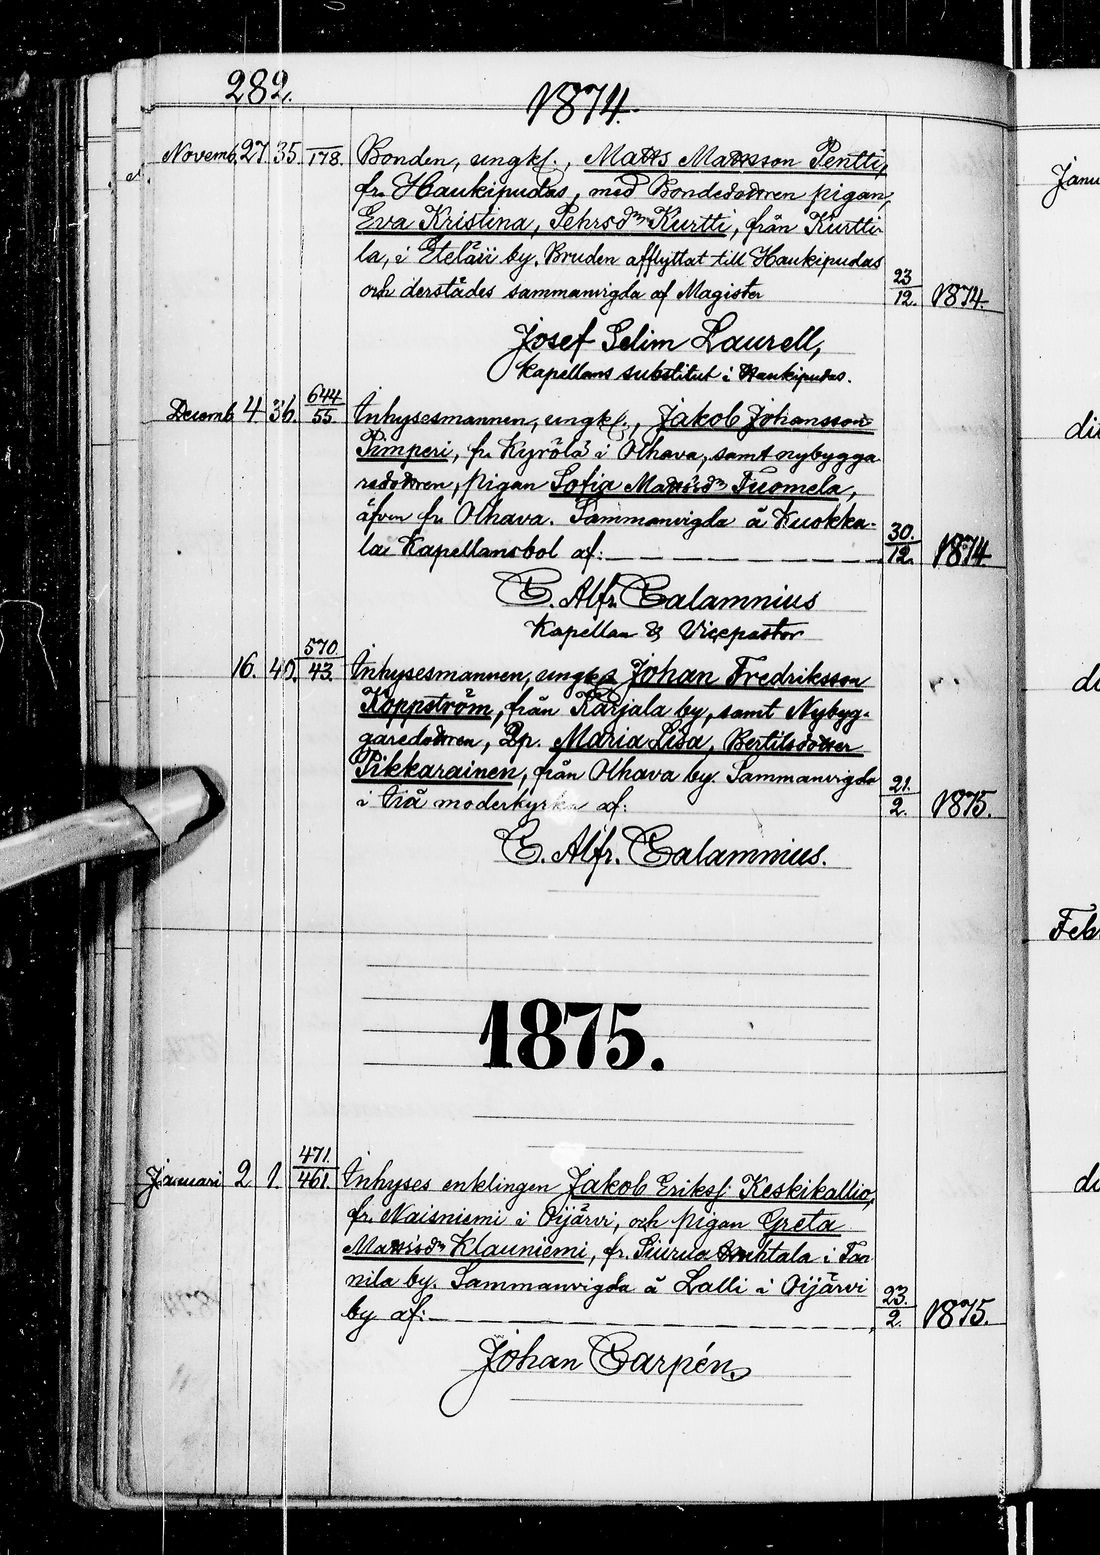 282.
1874.
Novemb. 27 35. 178. Bonden, ungk., Matts Mattsson Pentti,
fr. Haukipudas, med Bondedottren pigan,
Eva Kristina, Pehrsdr Kurtti, från Kurtti-
la, i Etelä Ii by. Bruden afflyttat till Haukipudas
och derstädes sammanvigda af Magister 23/12. 1874.
Josef Selim Laurell,
Kapellans substitut i Haukipudas.
Decemb. 4 36. 644/55. Inhysesmannen, ungk., Jakob Johansson
Pimperi, fr. Kyrölä i Olhava, samt nybygga-
redottren, pigan Sofia Mattsdr Tuomela,
äfven fr. Olhava. Sammanvigda å Kuokka-
la Kapellansbol af: 30./12. 1874.
C. Alfr. Calamnius
Kapellan & Vicepastor
16. 40. 570./43. Inhysesmannen, ungk. Johan Fredriksson
Koppström, från Karjala by, samt Nybyg-
garedottren, Qp. Maria Lisa, Bertilsdotter
Pikkarainen, från Olhava by. Sammanvigda
i Iiå moderkyrka af: 21./2. 1875.
C. Alfr. Calamnius.
1875.
Januari 2 1. 471./461. Inhyses enklingen Jakob Eriks. Keskikallio,
fr. Naisniemi i Oijärvi, och pigan Greta
Mattsdr Klauniemi, fr. Siurua i Tan-
nila by. Sammanvigda å Lalli i Oijärvi
by af: 23./2. 1875.
Johan Carpén.
Janu
di
di
Feb
di